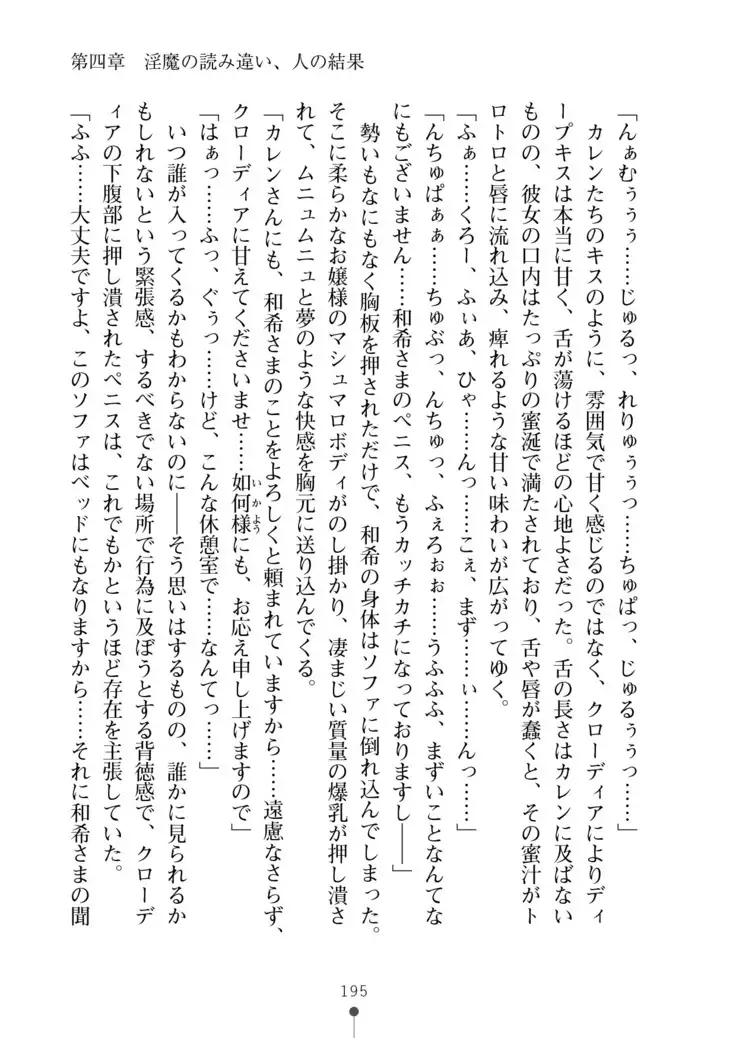 第四章　淫魔の読み違い、人の結果
「んぁむぅぅぅ……じゅるっ、れりゅぅぅっ……ちゅぱっ、じゅるぅぅっ……」
　カレンたちのキスのように、雰囲気で甘く感じるのではなく、クローディアによりディ
ープキスは本当に甘く、舌が蕩けるほどの心地よさだった。舌の長さはカレンに及ばない
ものの、彼女の口内はたっぷりの蜜涎で満たされており、舌や唇が蠢くと、その蜜汁がト
ロトロと唇に流れ込み、痺れるような甘い味わいが広がってゆく。
「ふぁ……くろー、ふぃあ、ひゃ……んっ……こぇ、まず……ぃ……んっ……」
「んちゅぱぁぁ……ちゅぶっ、んちゅっ、ふぇろぉぉ……うふふふ、まずいことなんてな
にもございません……和希さまのペニス、もうカッチカチになっておりますし――」
　勢いもなにもなく胸板を押されただけで、和希の身体はソファに倒れ込んでしまった。
そこに柔らかなお嬢様のマシュマロボディがのし掛かり、凄まじい質量の爆乳が押し潰さ
れて、ムニュムニュと夢のような快感を胸元に送り込んでくる。
「カレンさんにも、和希さまのことをよろしくと頼まれていますから……遠慮なさらず、
クローディアに甘えてくださいませ……如何様いかようにも、お応え申し上げますので」
「はぁっ……ふっ、ぐぅっ……けど、こんな休憩室で……なんてっ……」
　いつ誰が入ってくるかもわからないのに――そう思いはするものの、誰かに見られるか
もしれないという緊張感、するべきでない場所で行為に及ぼうとする背徳感で、クローデ
ィアの下腹部に押し潰されたペニスは、これでもかというほど存在を主張していた。
「ふふ……大丈夫ですよ、このソファはベッドにもなりますから……それに和希さまの聞
195